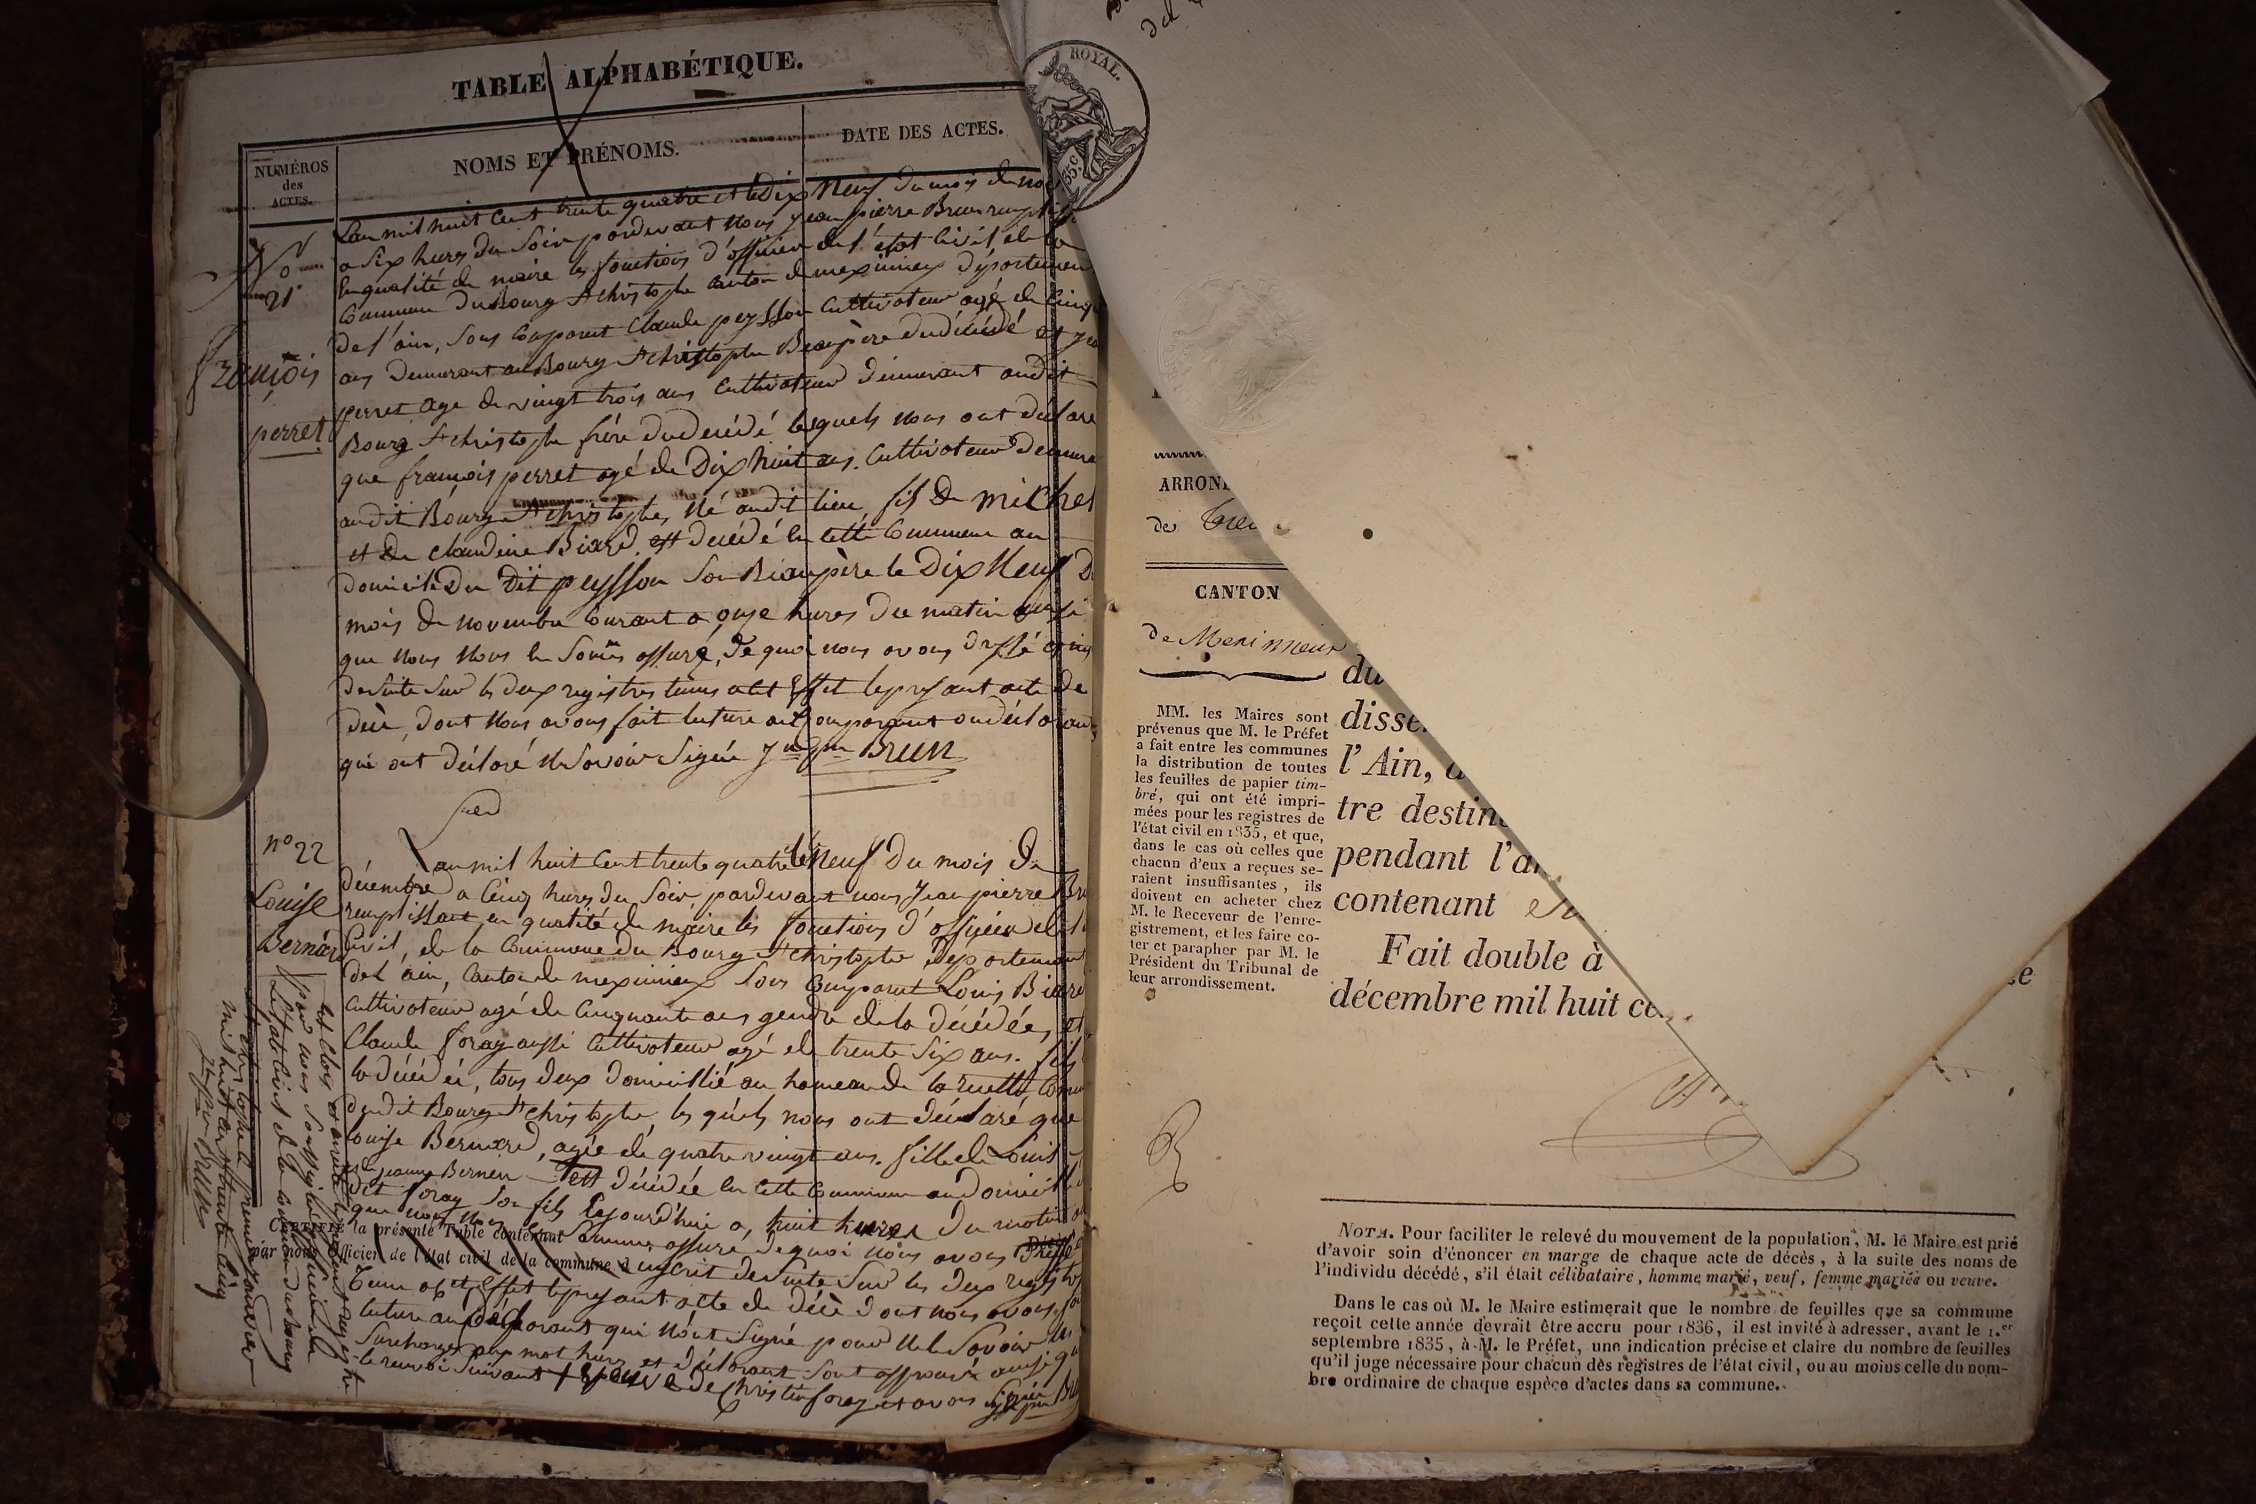 TABLE ALPHABÉTIQUE.
NUMÉROS
des
ACTES.
NOMS ET PRÉNOMS.
DATE DES ACTES.
No
21
françois
perret
L'an mil huit Cent trente quatre et le Dix Neuf du mois de nov
a Six hures du Soir pardevant Nous jean pierre Brun rempli
En qualité de maire les fonctions d'officier de l'état Civil de la
Commune du Bourg St christophe canton de meximieux départemen
de l'ain, Sont Comparut Claude peysson Cultivateur agé de Cinq
ans Demeurant au Bourg St christophe Beaupère du décédé et
perret age de vingt trois ans Cultivateur demeurant audit
Bourg St christophe frére du decédé lesquels nous ont déclaré
que françois perret agé de Dix huit ans. Cultivateur Demeura
audit Bourg St christophe, Né audit lieu, fils De michel
et De claudine Biard. est décédé en cette Commune au
domicile Du Dit peysson Son Beaupère le Dix Neuf D
mois De novembre Courant a onze hures du matin ainsi
que Nous Nous en Somes assuré, De quoi nous avons dressé
de Suite Sur les deux registres tenus a cet Effet le present acte de
décè, dont Nous avons fait lecture aux Comparant ou déclarans
qui ont déclaré Ne Savoir Signér Jn pre Brun
n° 22
Louise
Bernard
L'an mil huit Cent trente quatre le Neuf Du mois De
décembre a Cinq hures du Soir, pardevant nous Jean pierre Bru
remplissant en qualité de maire les fonctions d'officier de l'
Civil, de la Commune Du Bourg St christophe, departement
del'ain, Canton de meximieux Sont Comparut Louis Biard
Cultivateur agé de Cinquante ans gendre de la décédée, et
Claude foray aussi Cultivateur agé de trente Six ans. fils
la décédée, tous deux domicillié au hameau De la ruette, Comm
dudit Bourg St christophe, les quels nous ont déclaré que
Louise Bernard, agée de quatre vingt ans. fille de Louis
De jeanne Bernein est décédée en cette Commune au Domicille
dit foray Son fils Cejourd'hui a huit hures Du matin
que nous nous en Somme assuré de quoi nous avons Dressé
inscrit de Suite Sur les deux registres
tenu a cet Effet le present acte de décè Dont nous avons
lecture aux déclarant qui n'ont Signé pour ne le Savoir
Surcharges aux mot hures et déclarant Sont approuvé ainsi que
le renvoi Suivant † veuve De Christin foray et avons Signé Bru
CERTIFIÉ la présente Table contenant
par nous Officier de l'état civil de la commune d
clos et arrêté le present registre
par nous Soussigné officier de
L'état Civil de la Commune du Bourg
St christophe le premier janvier
mil huit Cent trente Cinq
Jn pre Brun
ROYAL.
35c
ARRON
de
CANTON
de Meximieux
MM. les Maires sont
prévenus que M. le Préfet
a fait entre les communes
la distribution de toutes
les feuilles de papier tim-
bré, qui ont été impri-
mées pour les registres de
l'état civil en 1835, et que,
dans le cas où celles que
chacun d'eux a reçues se-
raient insuffisantes, ils
doivent en acheter chez
M. le Receveur de l'enre-
gistrement, et les faire co-
ter et parapher par M. le
Président du Tribunal de
leur arrondissement.
du
disse
l'Ain, d
tre destin
pendant l'a
contenant
Fait double à
décembre mil huit ce
NOTA. Pour faciliter le relevé du mouvement de la population, M. le Maire est prié
d'avoir soin d'énoncer en marge de chaque acte de décès, à la suite des noms de
l'individu décédé, s'il était célibataire, homme marié, veuf, femme mariée ou veuve.
Dans le cas où M. le Maire estimerait que le nombre de feuilles que sa commune
reçoit cette année devrait être accru pour 1836, il est invité à adresser, avant le 1.er
septembre 1835, à M. le Préfet, une indication précise et claire du nombre de feuilles
qu'il juge nécessaire pour chacun des registres de l'état civil, ou au moins celle du nom-
bre ordinaire de chaque espèce d'actes dans sa commune.